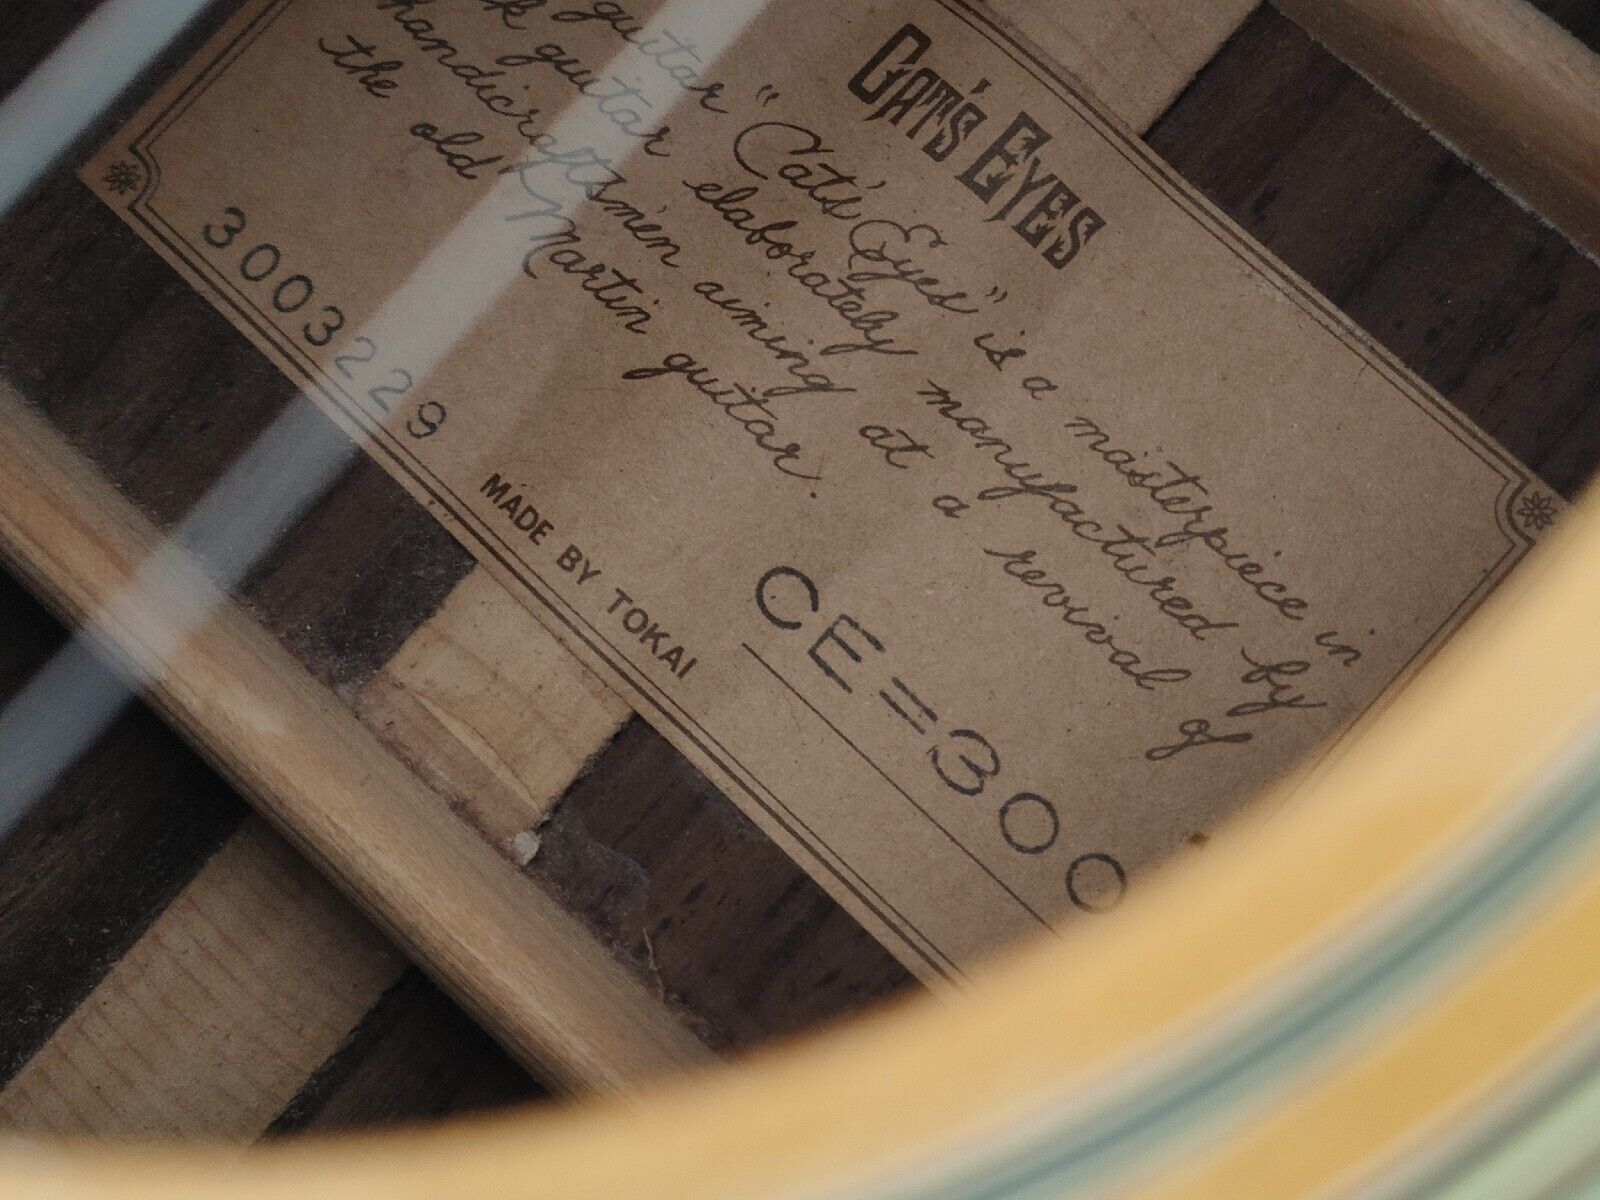 CAT'S EYES
guitar "Cat's Eyes" is a masterpiece in
guitar elaborately manufactured by
handicraftsmen aiming at a revival of
the old Martin guitar.
3003229
CE=300
MADE BY TOKAI